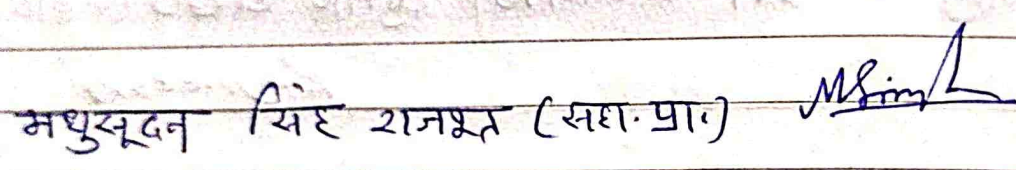 मधुसूदन सिंह राजपूत (सहा. प्रा.) MSingh